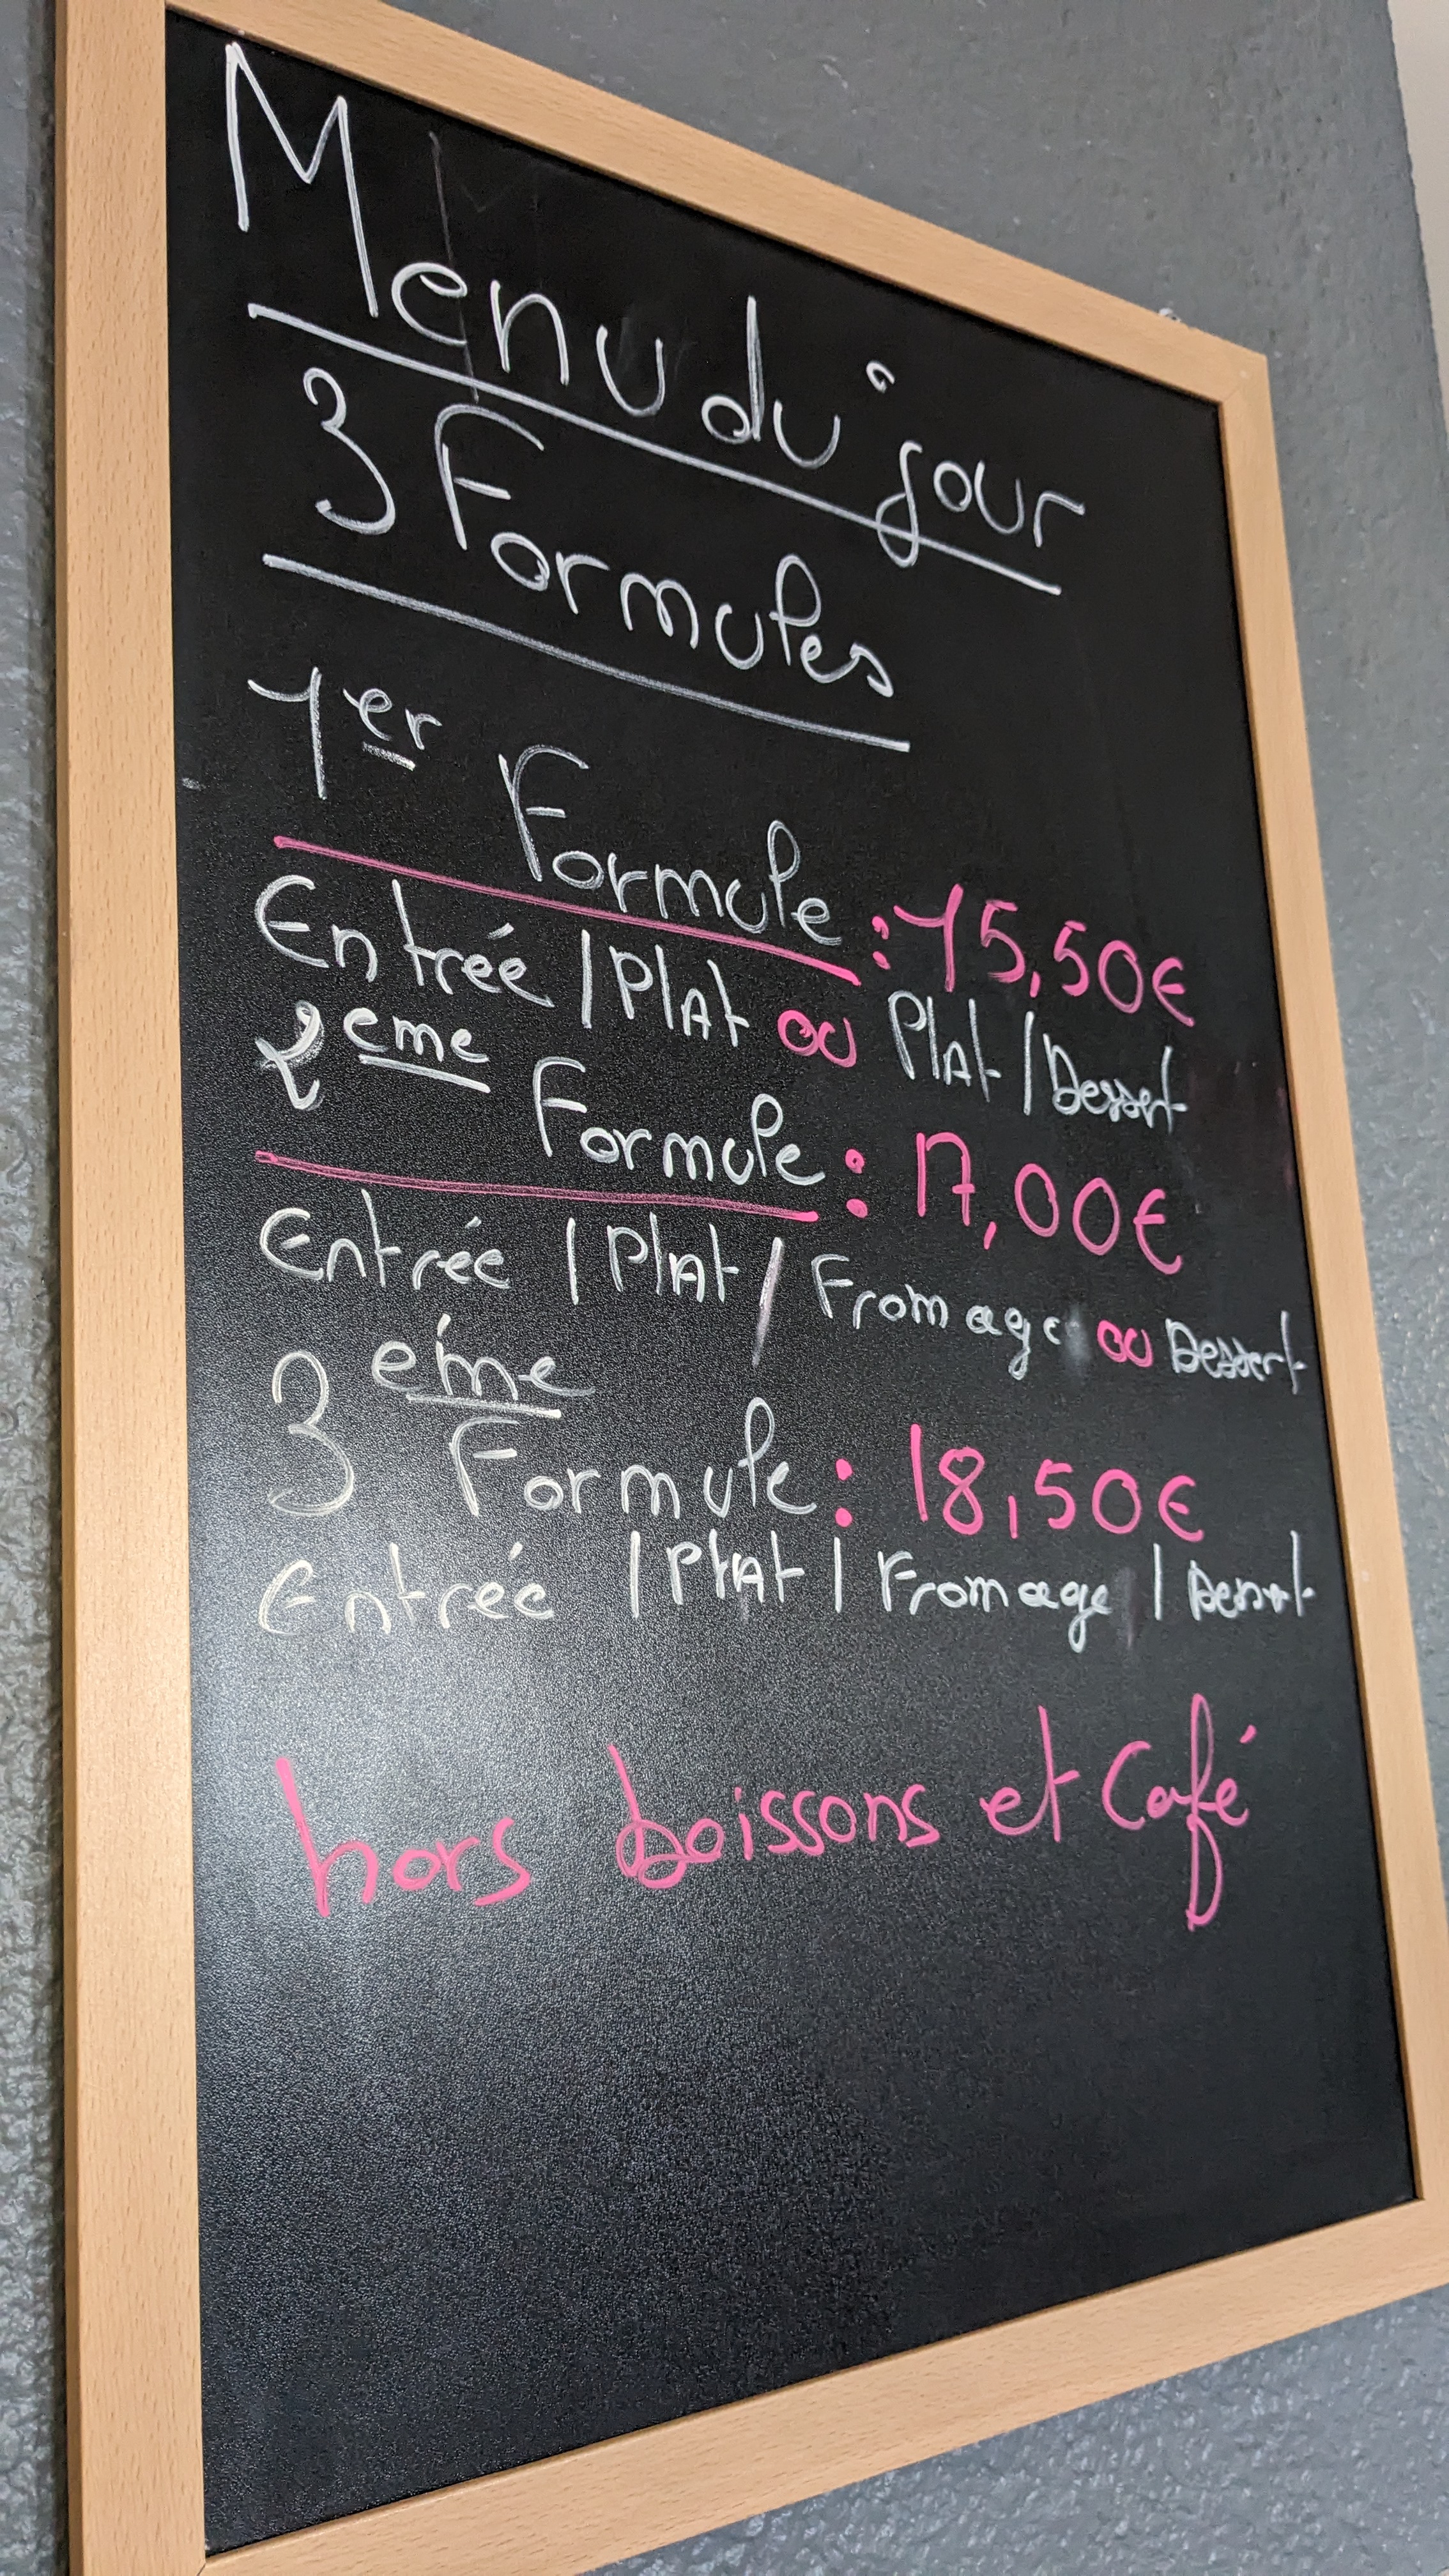 Menu du jour
3 Formules
1er Formule : 15,50€
Entrée / Plat ou Plat / Dessert
2eme Formule : 17,00€
Entrée / Plat / Fromage ou Dessert
3 éme Formule : 18,50€
Entrée / Plat / Fromage / Dessert
hors boissons et Café